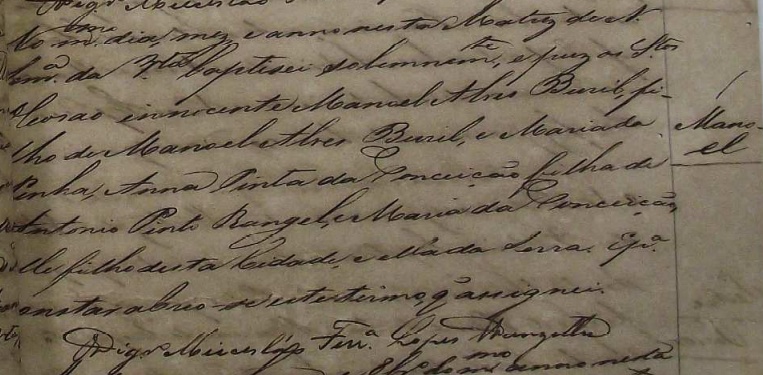 Vigr.o
No m.mo dia, mez e anno nesta Matriz de N.
da baptisei solemnem.te, e puz os S.tos
Oleos ao innocente Manoel Alves Buril, fi-
lho de Manoel Alves Buril, e Maria da
Penha, Anna Pinta da Conceição, filha de
Antonio Pinto Rangel, e Maria da Conceição,
elle filho desta Cidade, e ella da Serra. E p.a
constar abrio-se este termo q̃ assignei.
Vigr.o Ferr.a Lopes
anno nesta
Mano-
el